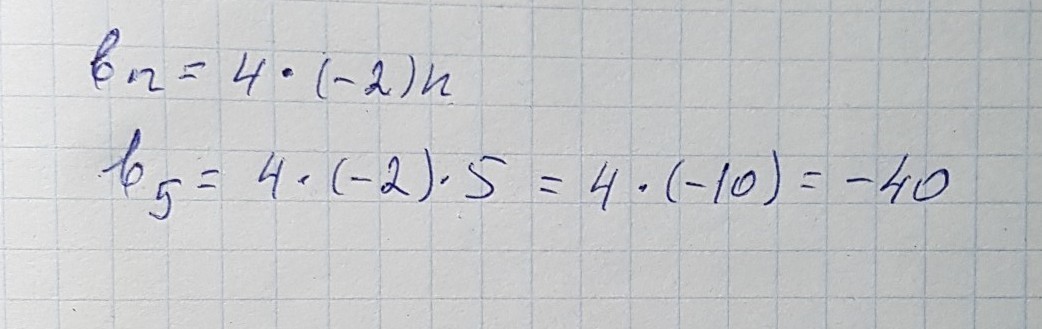 bₙ = 4 · (-2)n
b₅ = 4 · (-2) · 5 = 4 · (-10) = -40